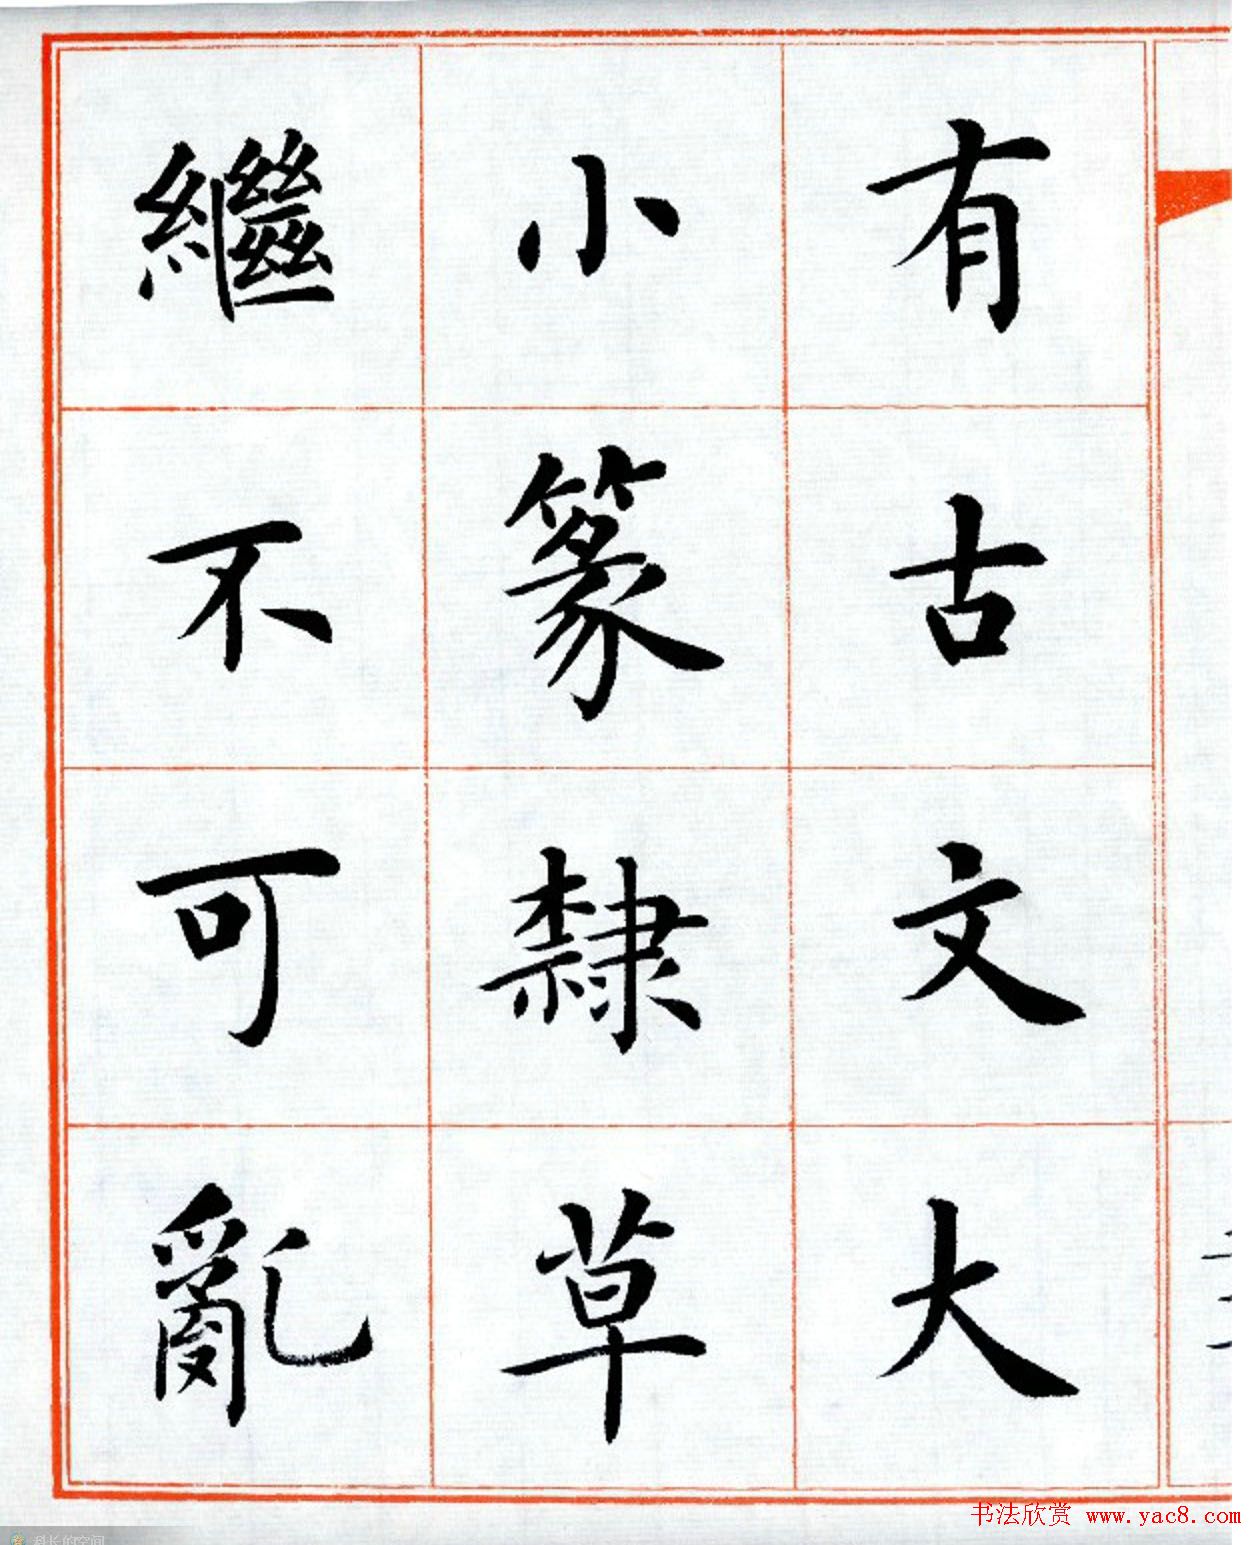 有古文大
小篆隸草
繼不可亂
书法欣赏 www.yac8.com
科长的空间